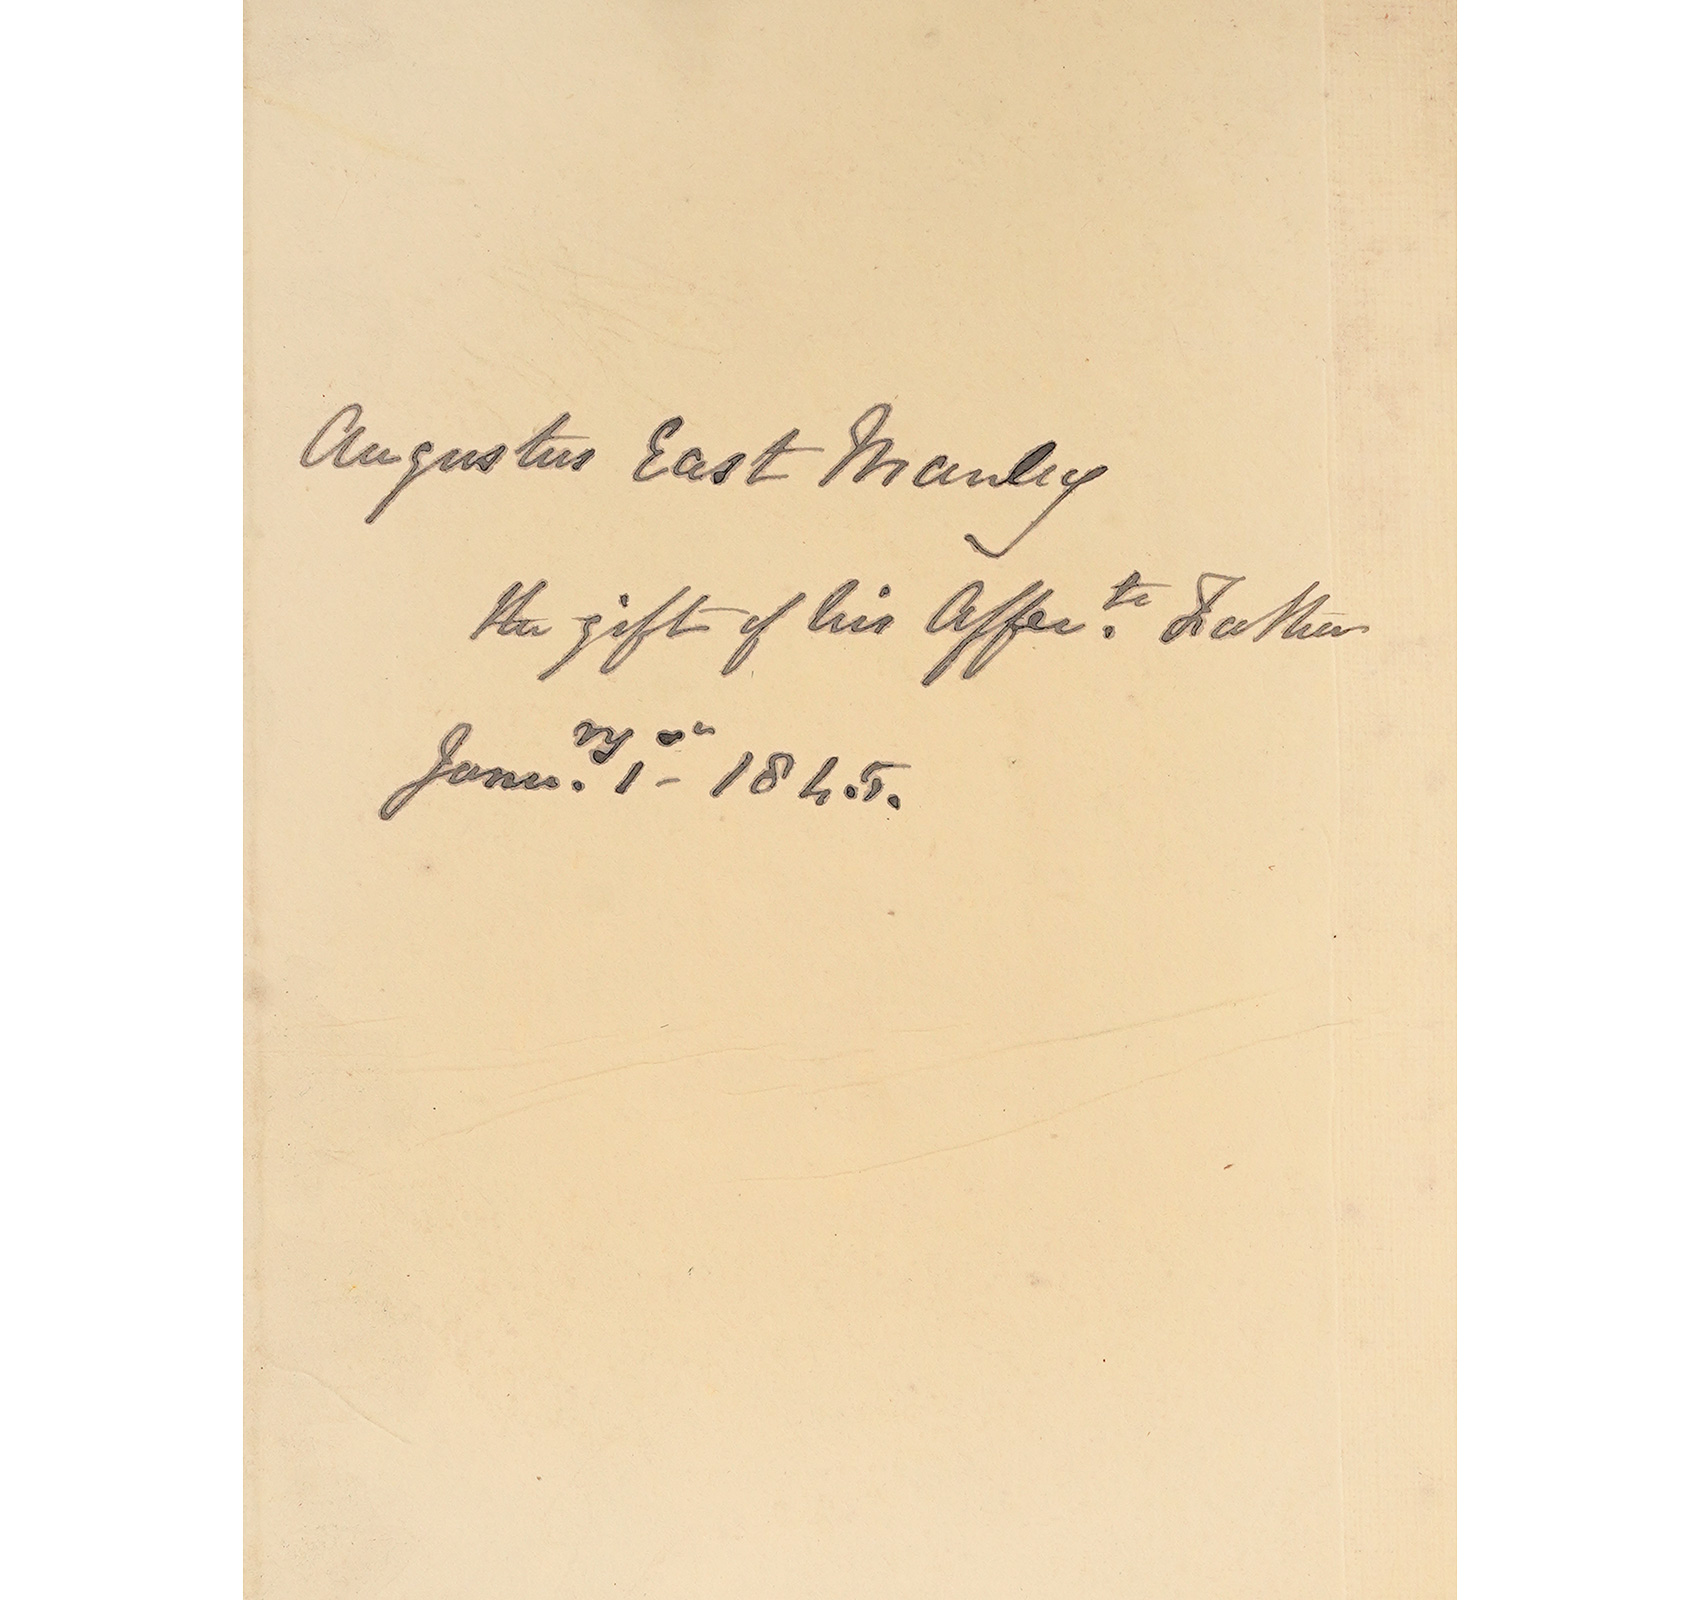 Augustus East Manley
the gift of his Affec.te Father
Janu.ry 1st 1845.